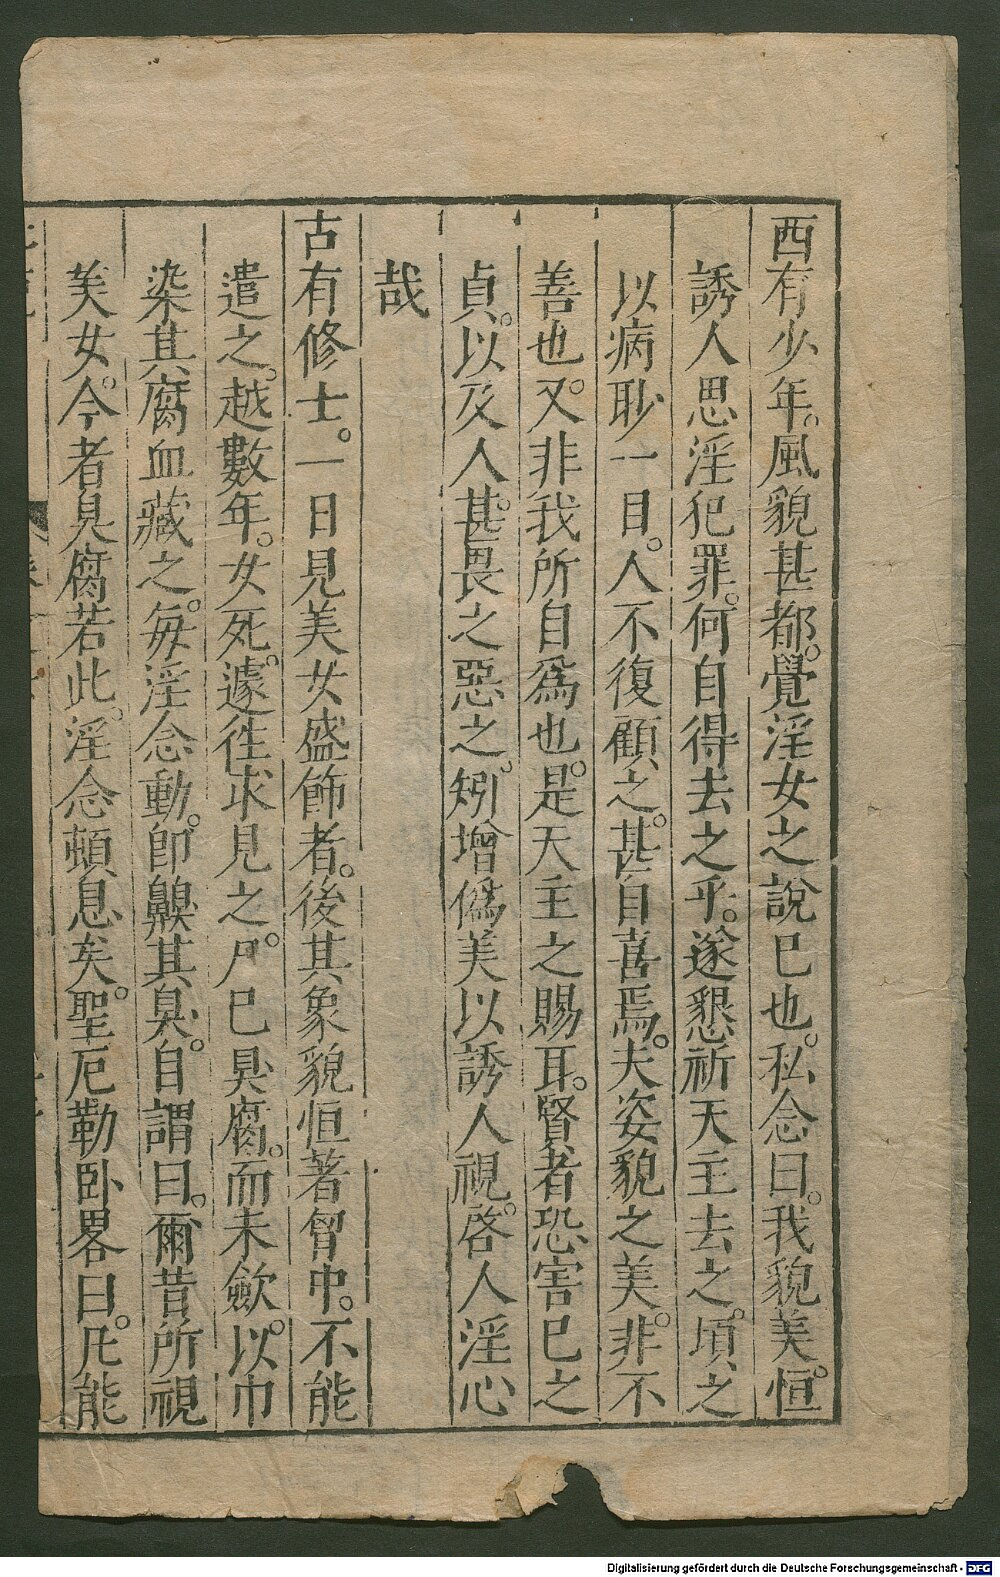 西有少年。風貌甚都。覺淫女之說已也。私念曰。我貌美。恒
誘人思淫犯罪。何自得去之乎。遂懇祈天主去之。頃之
以病眇一目。人不復顧之。甚自喜焉。夫姿貌之美。非不
善也。又非我所自爲也。是天主之賜耳。賢者恐害已之
貞。以及人。甚畏之惡之。矧增僞美以誘人視。啓人淫心
哉
古有修士。一日見美女盛飾者。後其象貌恒著胷中。不能
遣之。越數年。女死。遽徃求見之。尸已臭腐。而未歛。以巾
染其腐血藏之。每淫念動。卽齅其臭。自謂曰。爾昔所視
美女。今者臭腐若此。淫念頓息矣。聖厄勒卧畧曰。凡能
Digitalisierung gefördert durch die Deutsche Forschungsgemeinschaft - DFG